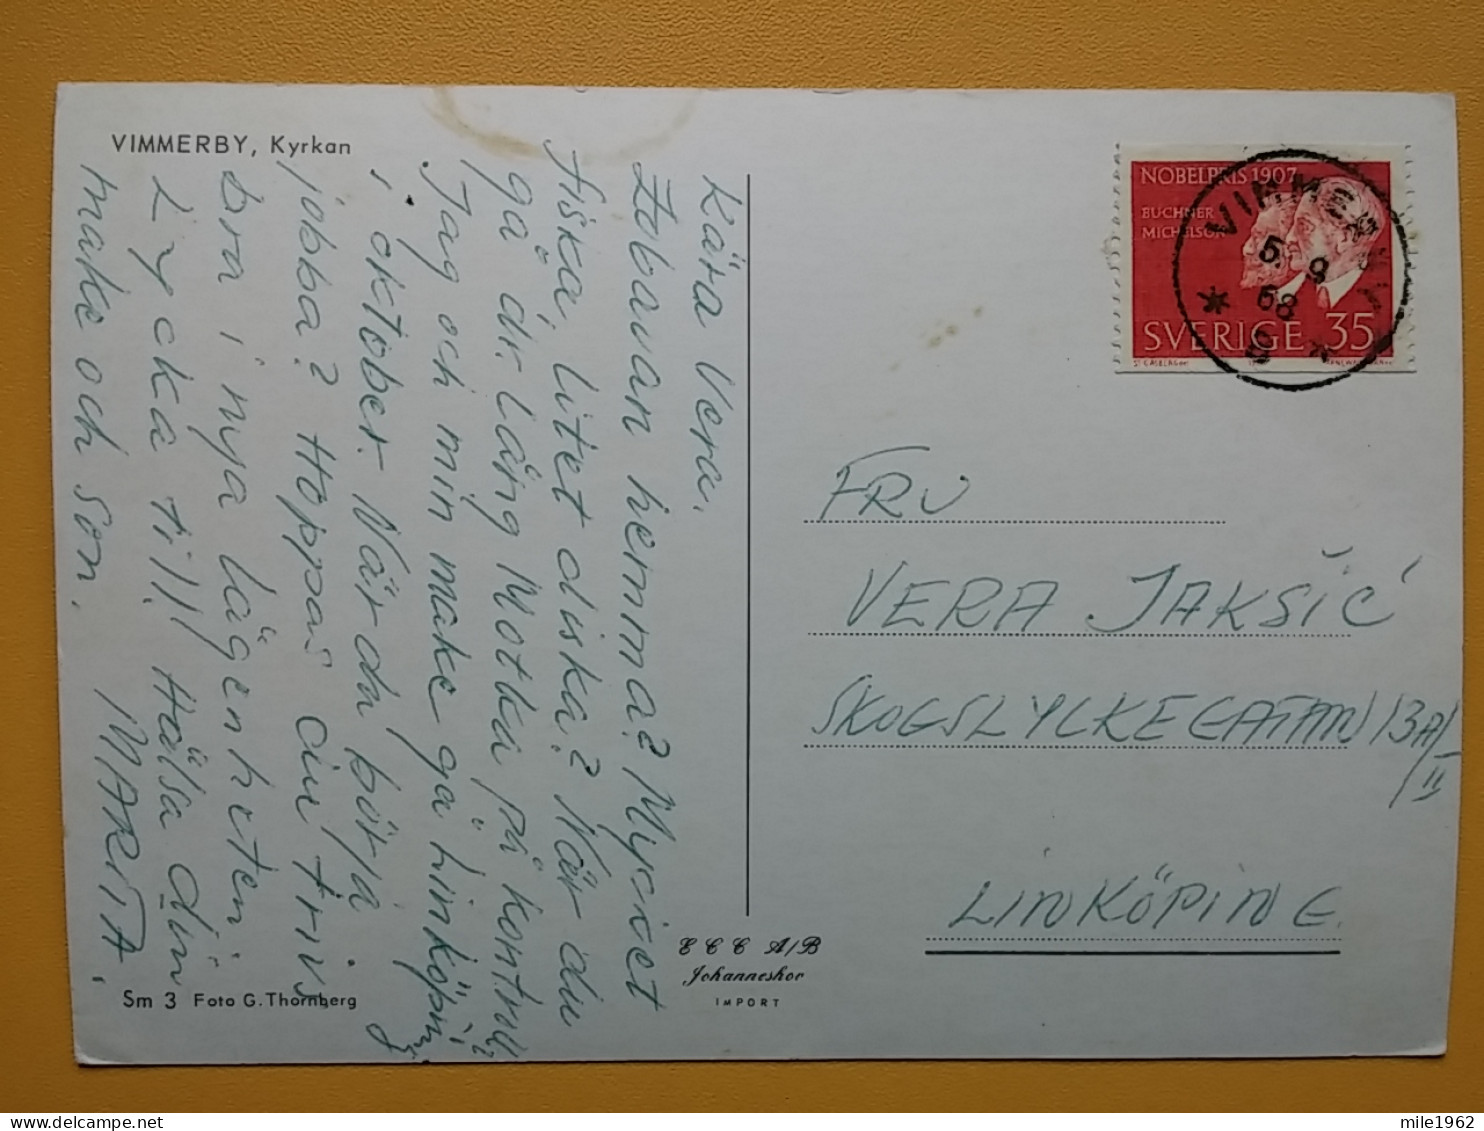 VIMMERBY, Kyrkan
Kära Vera.
hemma? Mycket
fiska, litet diska? När du
gå dr. Lång Motka på kontroll?
Jag och min make gå Linköping
i oktober. När du börja
jobba? Hoppas du trivs
bra i nya lägenheten.
Lycka till! Hälsa din
make och son.
MARITA.
Sm 3 Foto G. Thornberg
E C C A/B
Johanneshov
IMPORT
NOBELPRIS 1907
BUCHNER
MICHELSON
SVERIGE 35
VIMMERBY
5. 9
68
FRU
VERA JAKŠIĆ
SKOGSLYCKEGATAN 13A/II
LINKÖPING.
mile1962